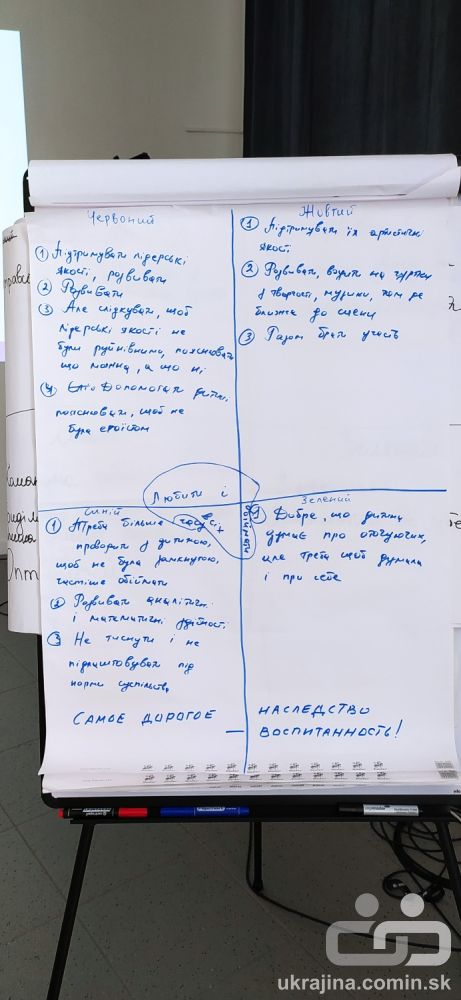 Червоний
① Підтримувати лідерські
якості, розвивати
② Розвивати
③ Але слідкувати, щоб
лідерські якості не
були руйнівними, пояснювати
що можна, а що ні
④ Допомогати дитині
пояснювати, щоб не
була егоїстом
Жовтий
① Підтримувати їх артистичні
якості
② Розвивати, водити на гуртки
творчості, музики, там де
ближче до сцени
③ Разом брати участь
Любити і
обіймати
всіх
Синій
① Треба більше часу
проводити з дитиною,
щоб не була замкнутою,
частіше обіймати
② Розвивати аналітичні
і математичні здібності
③ Не тиснути і не
підлаштовувати під
норми суспільства
Зелений
① Добре, що дитина
думає про оточуючих,
але треба щоб думала
і про себе
САМОЕ ДОРОГОЕ —
НАСЛЕДСТВО
ВОСПИТАННОСТЬ!
ukrajina.comin.sk